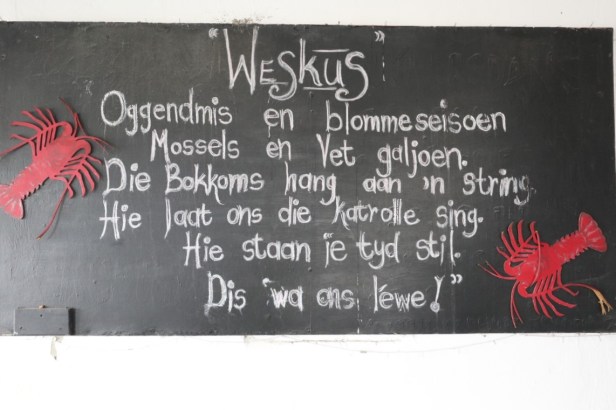 "WESKUS"
Oggendmis en blommeseisoen
Mossels en Vet galjoen.
Die Bokkoms hang aan 'n string.
Hie laat ons die katrolle sing.
Hie staan ie tyd stil.
Dis 'wa ons léwe!"